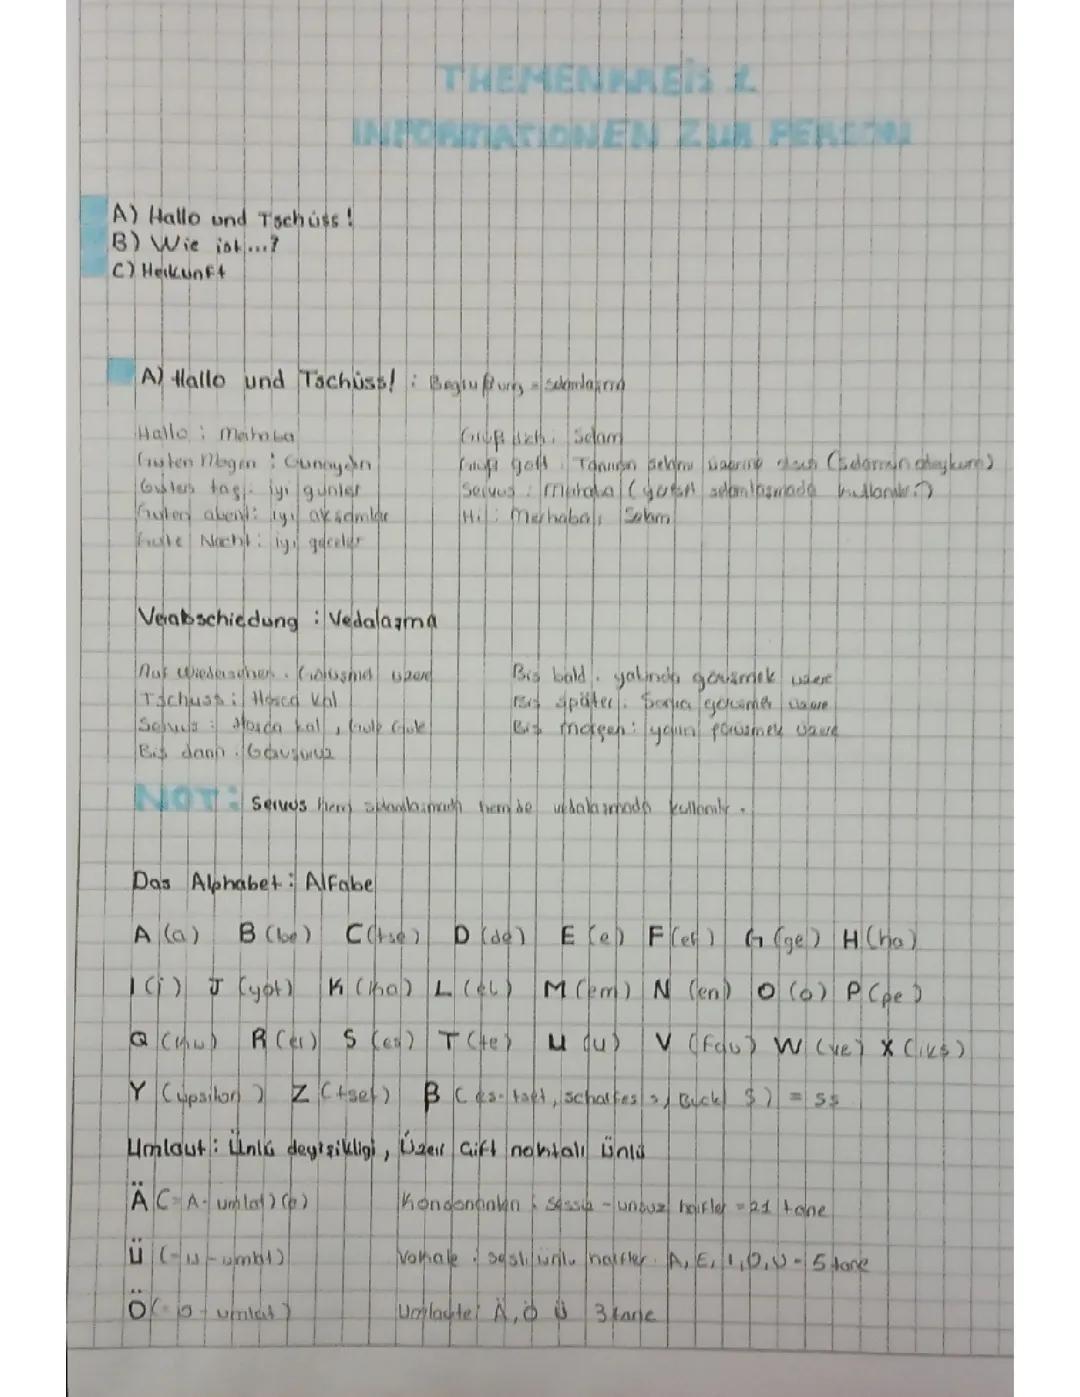 THEMENKREIS 1
INFORMATIONEN ZUR PERSON
A) Hallo und Tschüss!
B) Wie ist...?
C) Herkunft
A) Hallo und Tschüss! : Begrüßung = selamlaşma
Hallo : Merhaba
Guten Mogen : Gunaydın
Guten tag : iyi günler
Guten abent : iyi aksamlar
Gute Nacht : iyi geceler
Grüß dich : Selam
Grüß gott : Tanrının selamı üzerine olsun (Selamün aleykum)
Servus : Merhaba ( selamlasmada kullanılır.)
Hi : Merhaba, Selam
Verabschiedung : Vedalaşma
Auf wiedersehen : Görüşmek üzere
Tschuss : Hosca kal
Servus : Hosca kal, Gule Gule
Bis dann : Görüşürüz
Bis bald : yakında görüşmek üzere
Bis später : Sonra görüsmek üzere
Bis morgen : yarın görüsmek üzere
NOT : Servus hem selamlasmada hem de vedalasmada kullanılır.
Das Alphabet : Alfabe
A (a) B (be) C (tse) D (de) E (e) F (ef) G (ge) H (ha)
I (i) J (yot) K (kha) L (el) M (em) N (en) O (o) P (pe)
Q (khu) R (er) S (es) T (te) U (u) V (fau) W (ve) X (iks)
Y (üpsilon) Z (tset) ß (es-tset, scharfes s, S) = ss
Umlaut : Ünlü deyişikligi, Üzeri Çift noktalı Ünlü
Ä (= A - umlat) (e)
Ü (= u - umlat)
Ö (= o - umlat)
Konsonanten : sessiz - unsuz harfler = 21 tane
Vokale : sesli ünlü harfler A, E, I, O, U = 5 tane
Umlaute Ä, Ö Ü 3 tane